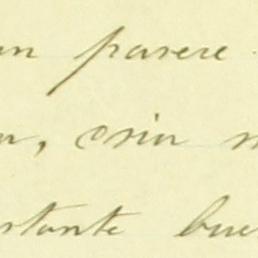 un parere
, osia
stante bue